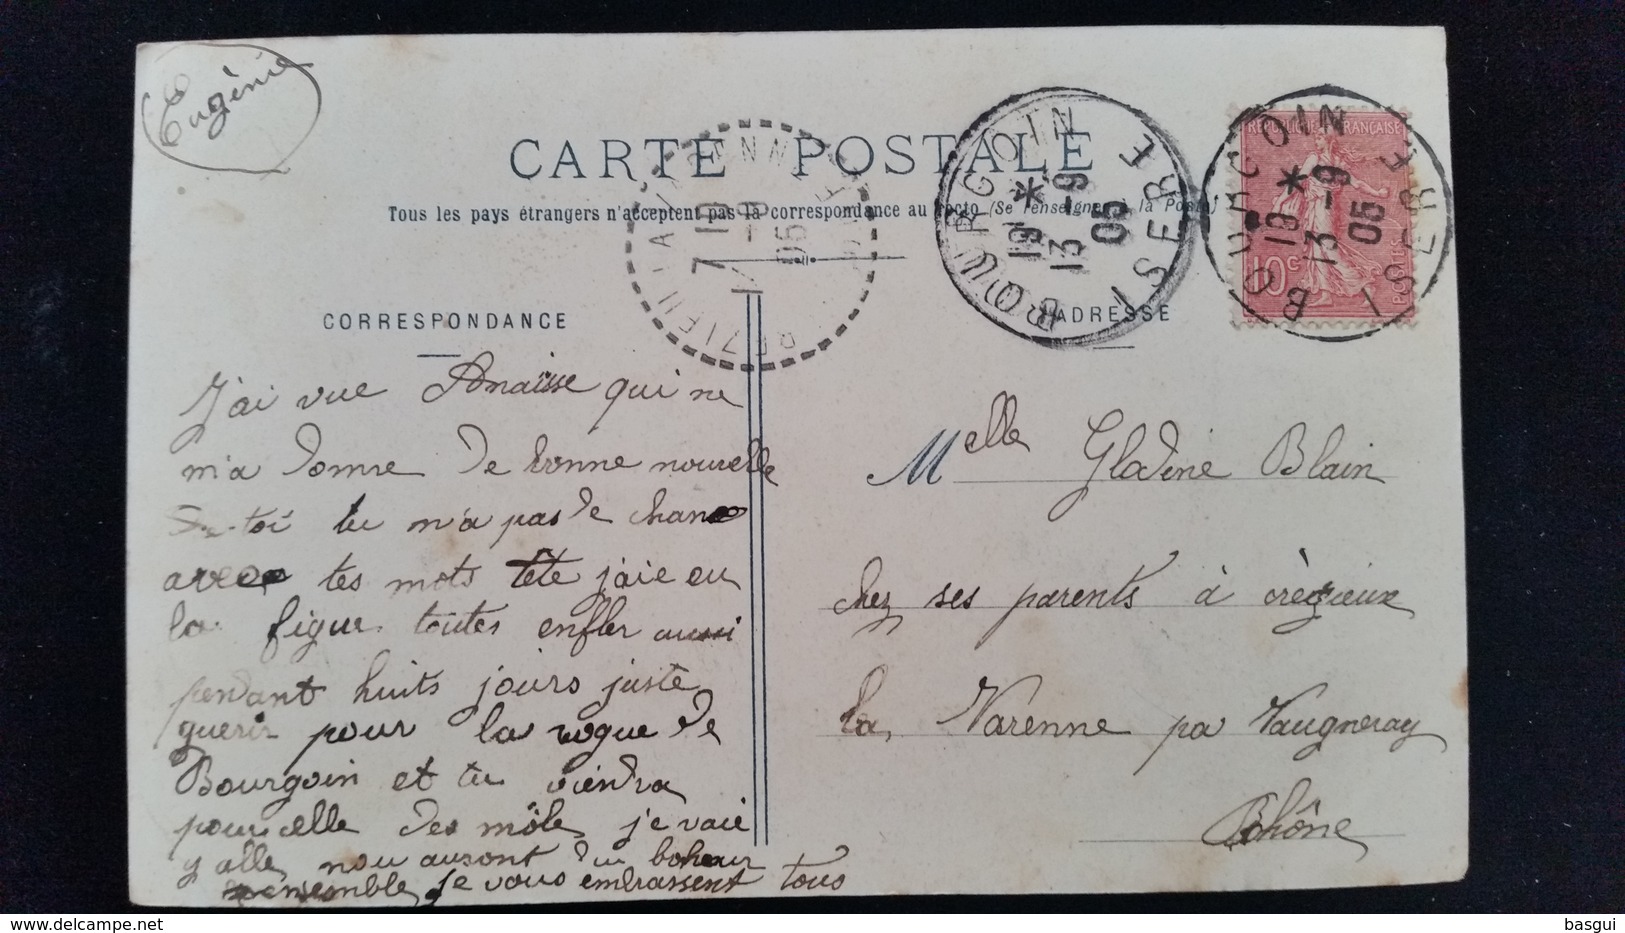 Eugénie
CARTE POSTALE
Tous les pays étrangers n'acceptent pas la correspondance au recto (Se renseigner à la Poste)
BOURGOIN
ISERE
19 *
13 -9
05
BOURGOIN
ISERE
19 *
13 -9
05
REPUBLIQUE FRANÇAISE
10c
POSTES
7 19
-9
05
CORRESPONDANCE
ADRESSE
J'ai vue Anaïsse qui ne
m'a donne de bonne nouvelle
De toi tu m'a pas de chance
avec tes mots tete j'aie eu
la figue toutes enfler aussi
pendant huits jours juste
guerir pour la vogue de
Bourgoin et tu viendra
pour celle des môle je vaie
y alle nou auront du boheur
ensemble je vous embrassent tous
Melle Glodine Blain
chez ses parents à crègieux
la Varenne pa Vaugneray
Rhône
basgui